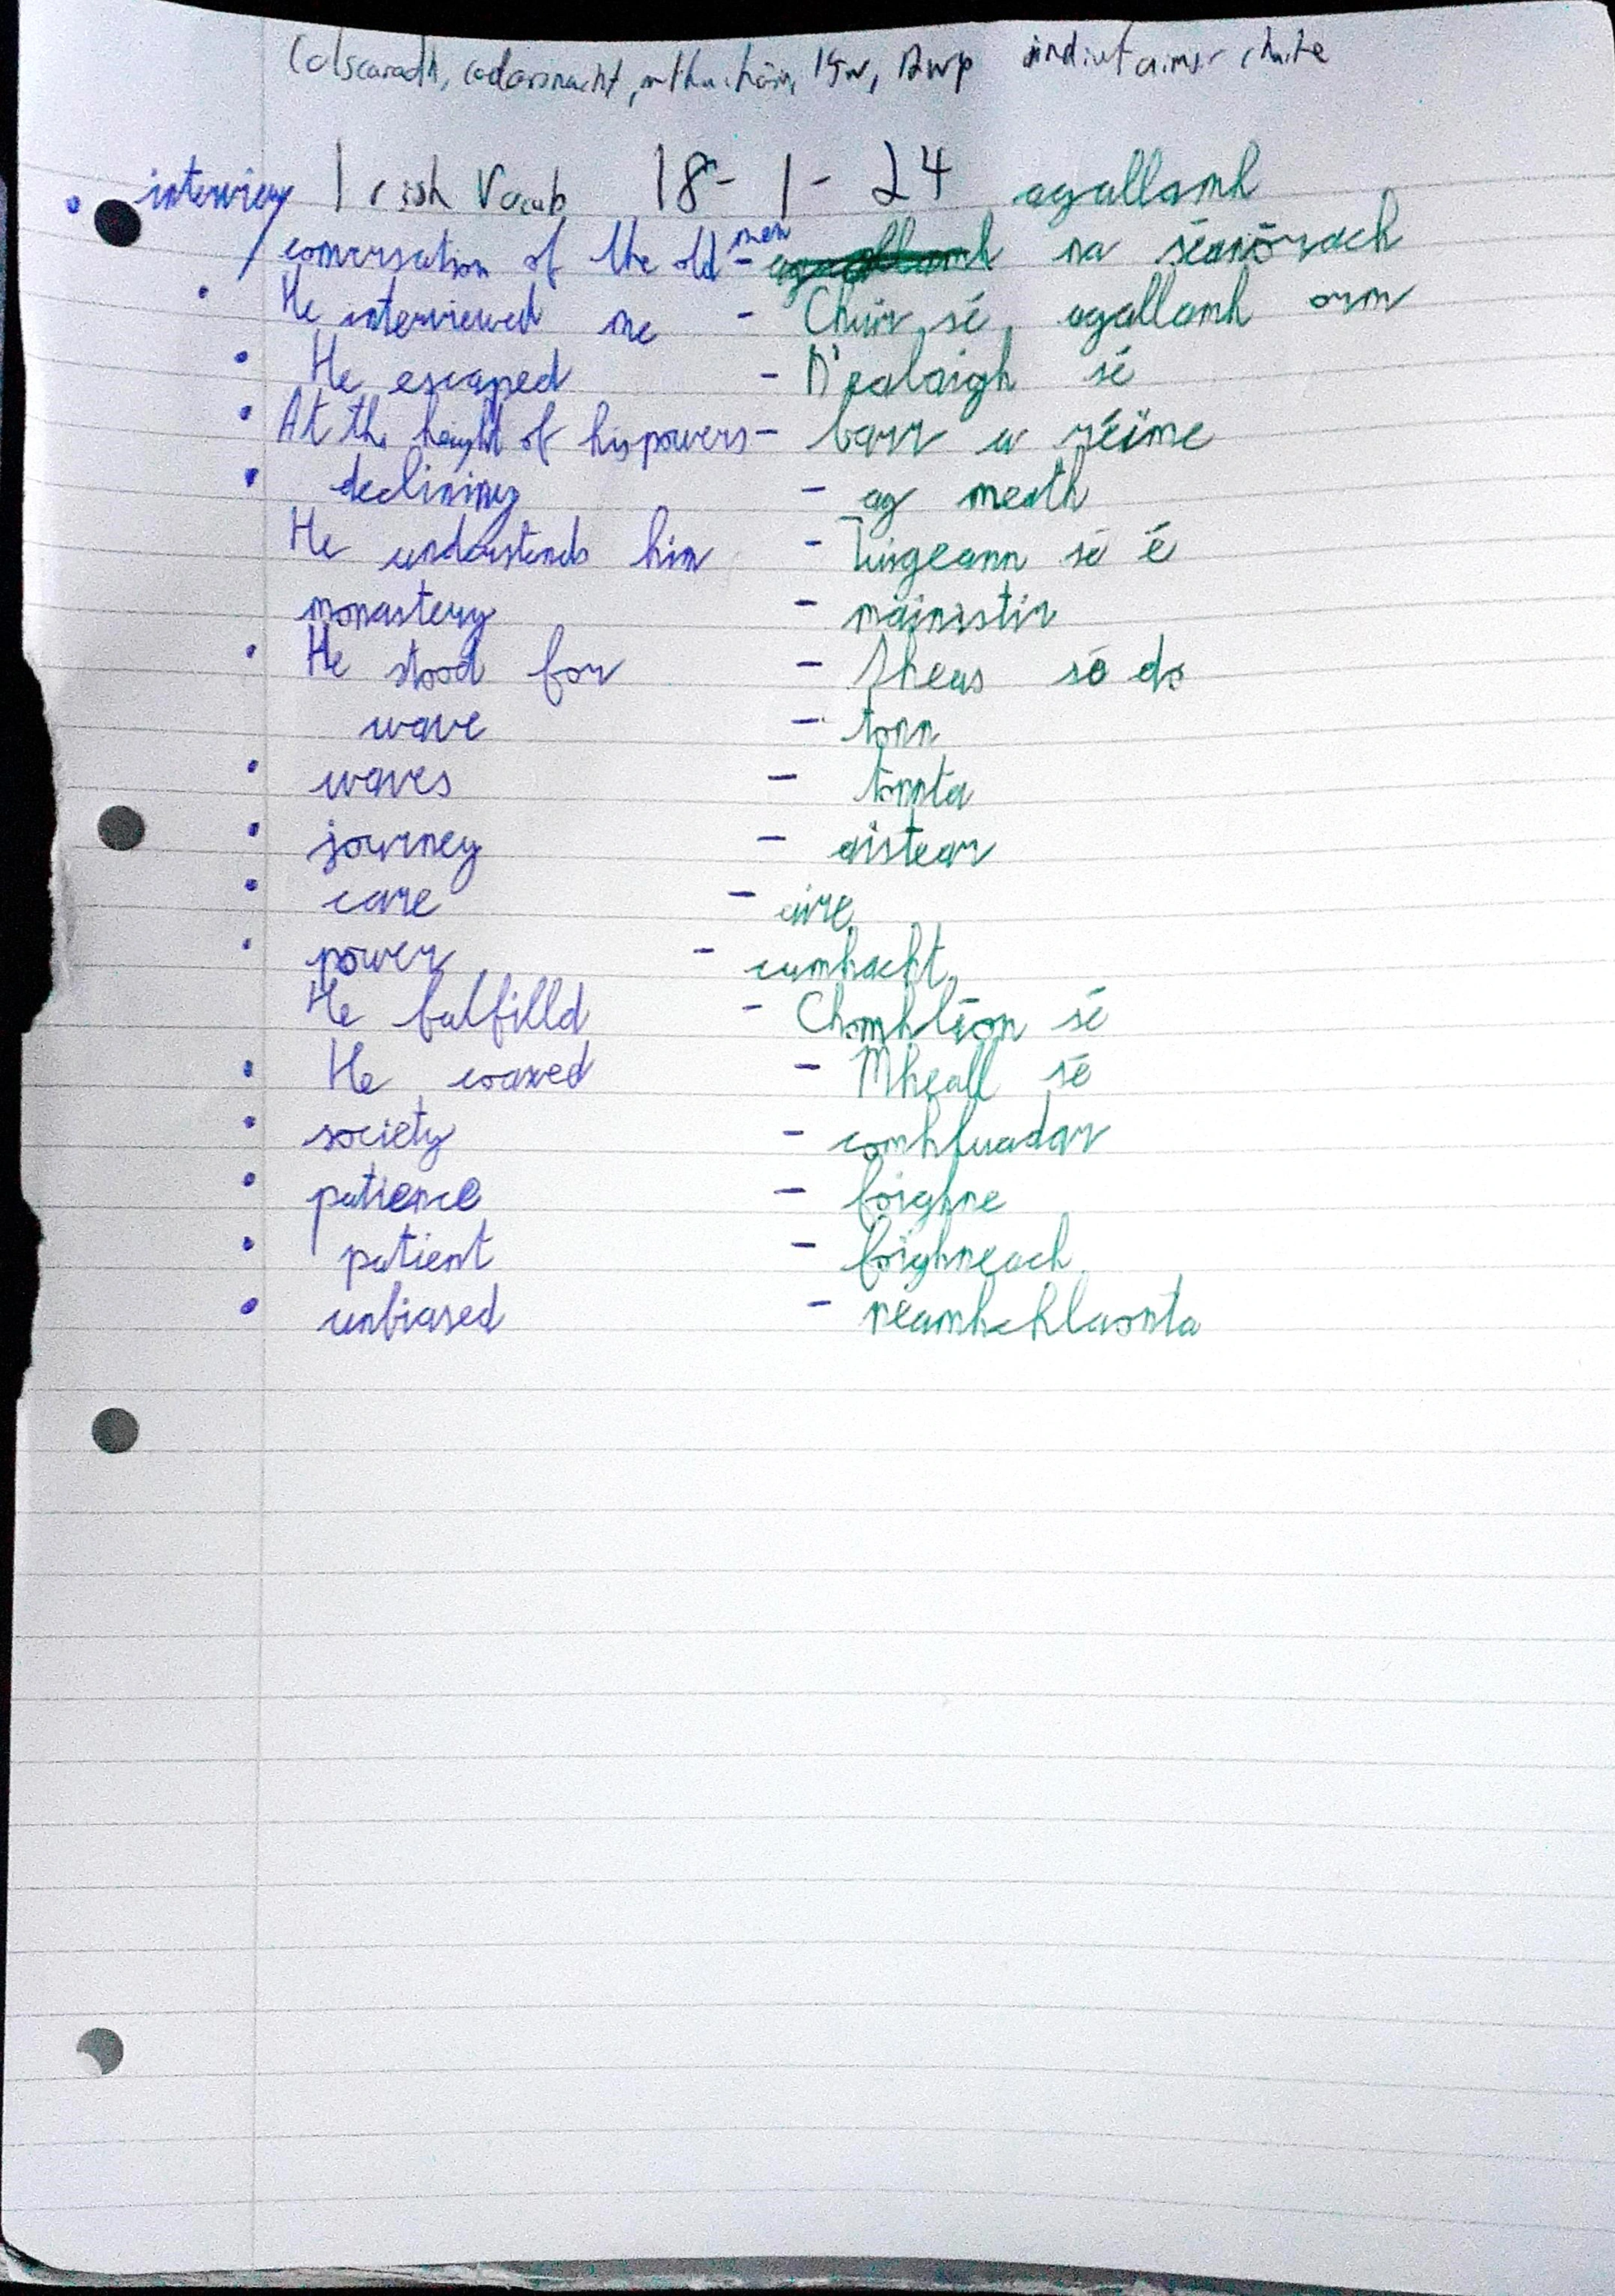 Colscaradh, codarsnacht, mothúcháin, indirect aimsir chaite
interview Irish Vocab 18-1-24 agallamh
conversation of the old men - agallamh na seanórach
He interviewed me - Chuir sé agallamh orm
He escaped - D'ealaigh sé
At the height of his powers - barr a réime
declining - ag meath
He understands him - Tuigeann sé é
monastery - mainistir
He stood for - Sheas sé do
wave - tonn
waves - tonnta
journey - aistear
care - aire
power - cumhacht
He fulfilld - Chomhlíon sé
He coaxed - Mheall sé
society - comhluadar
patience - foighne
patient - foighneach
unbiased - neamhchlaonta